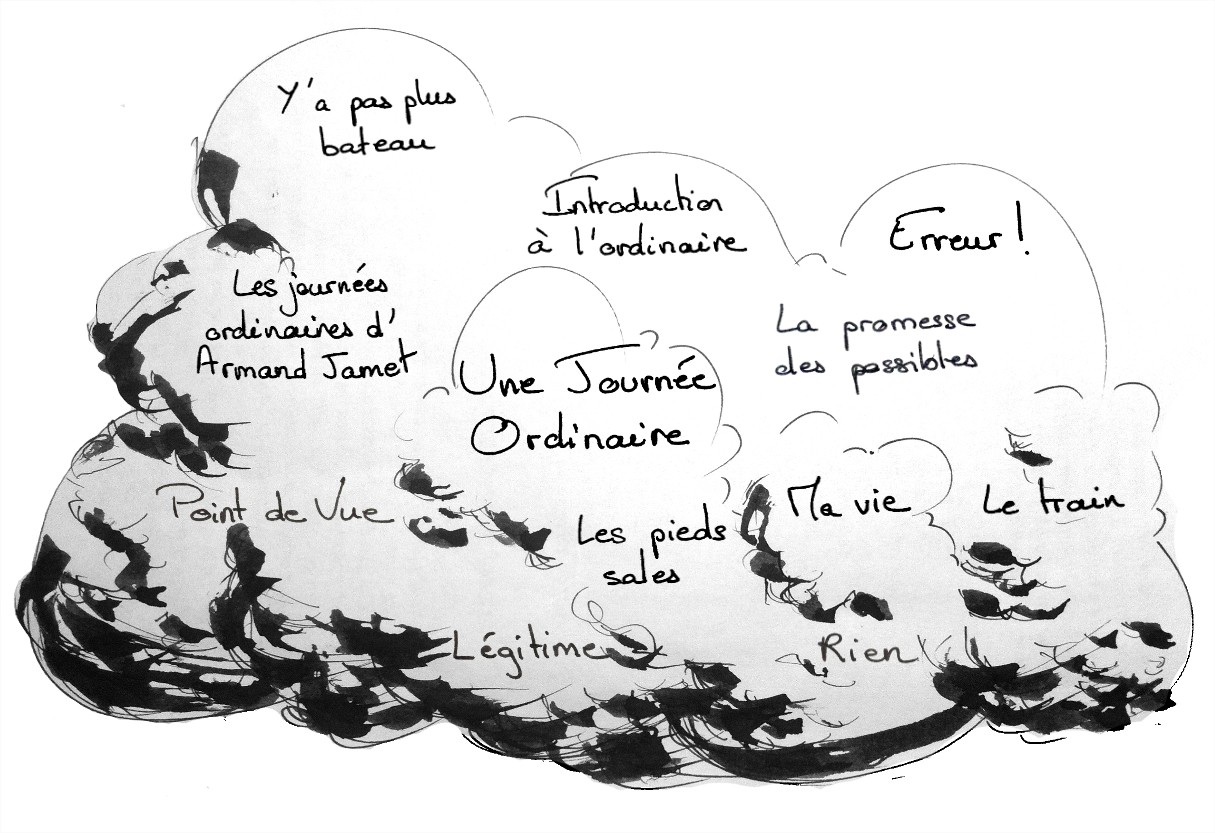 Y'a pas plus
bateau
Introduction
à l'ordinaire
Erreur !
Les journées
ordinaires d'
Armand Jamet
La promesse
des possibles
Une Journée
Ordinaire
Point de Vue
Ma vie
Le train
Les pieds
sales
Légitime
Rien